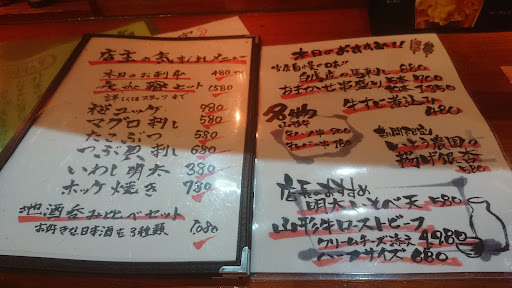 店主の気まぐれメニュー
本日のお刺身 480
セット 1580
詳しくはスタッフまで
桜ユッケ 780
マグロ刺し 580
たこぶつ 580
つぶ貝刺し 680
いわし明太 380
ホッケ焼き 780
地酒呑み比べセット
お好きな日本酒を3種類 1,080
本日のおすすめ!!
白鷹産の馬刺し
おまかせ串盛り 5本 700
牛すじ煮込み 480
名物
農園の
揚げ銀杏 580
店主のすすめ
明太いそべ天 580
山形牛ローストビーフ
クリームチーズ添え 980
ハーフサイズ 680